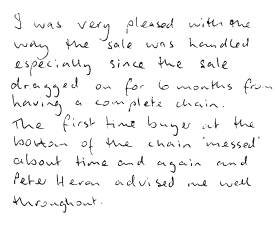 I was very pleased with the
way the sale was handled
especially since the sale
dragged on for 6 months from
having a complete chain.
The first time buyer at the
bottom of the chain 'messed'
about time and again and
Peter Heron advised me well
throughout.